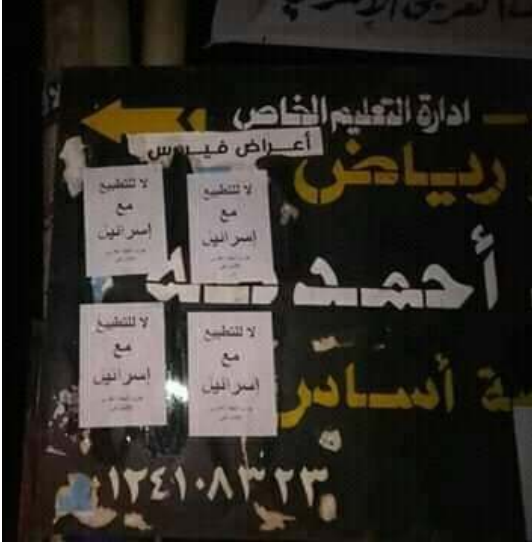 العربي
ادارة التعليم الخاص
أعـراض فيـروس
ريـاض
لا للتطبيع
مع
إسرائيل
لا للتطبيع
مع
إسرائيل
أحمد
لا للتطبيع
مع
إسرائيل
لا للتطبيع
مع
إسرائيل
أساس
١٢٤١٠٨٣٢٣